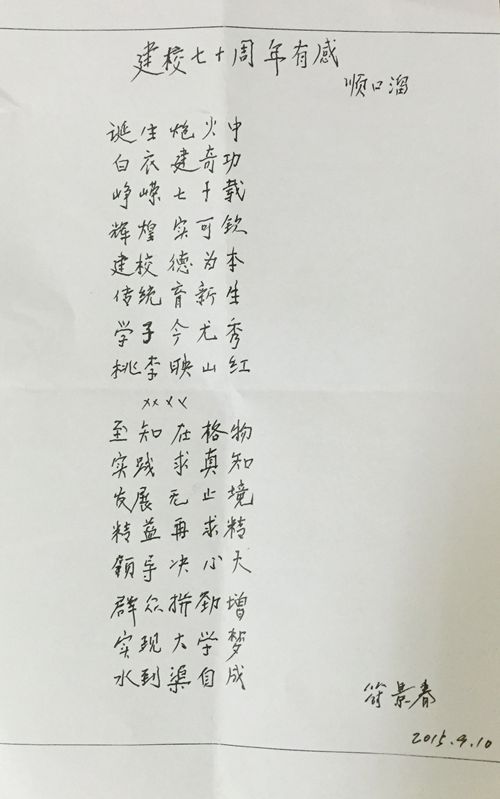 建校七十周年有感
顺口溜
诞生炮火中
白衣建奇功
峥嵘七十载
辉煌实可钦
建校德为本
传统育新生
学子今尤秀
桃李映山红
××××
至知在格物
实践求真知
发展无止境
精益再求精
领导决心大
群众拼劲增
实现大学梦
水到渠自成
符景春
2015.9.10